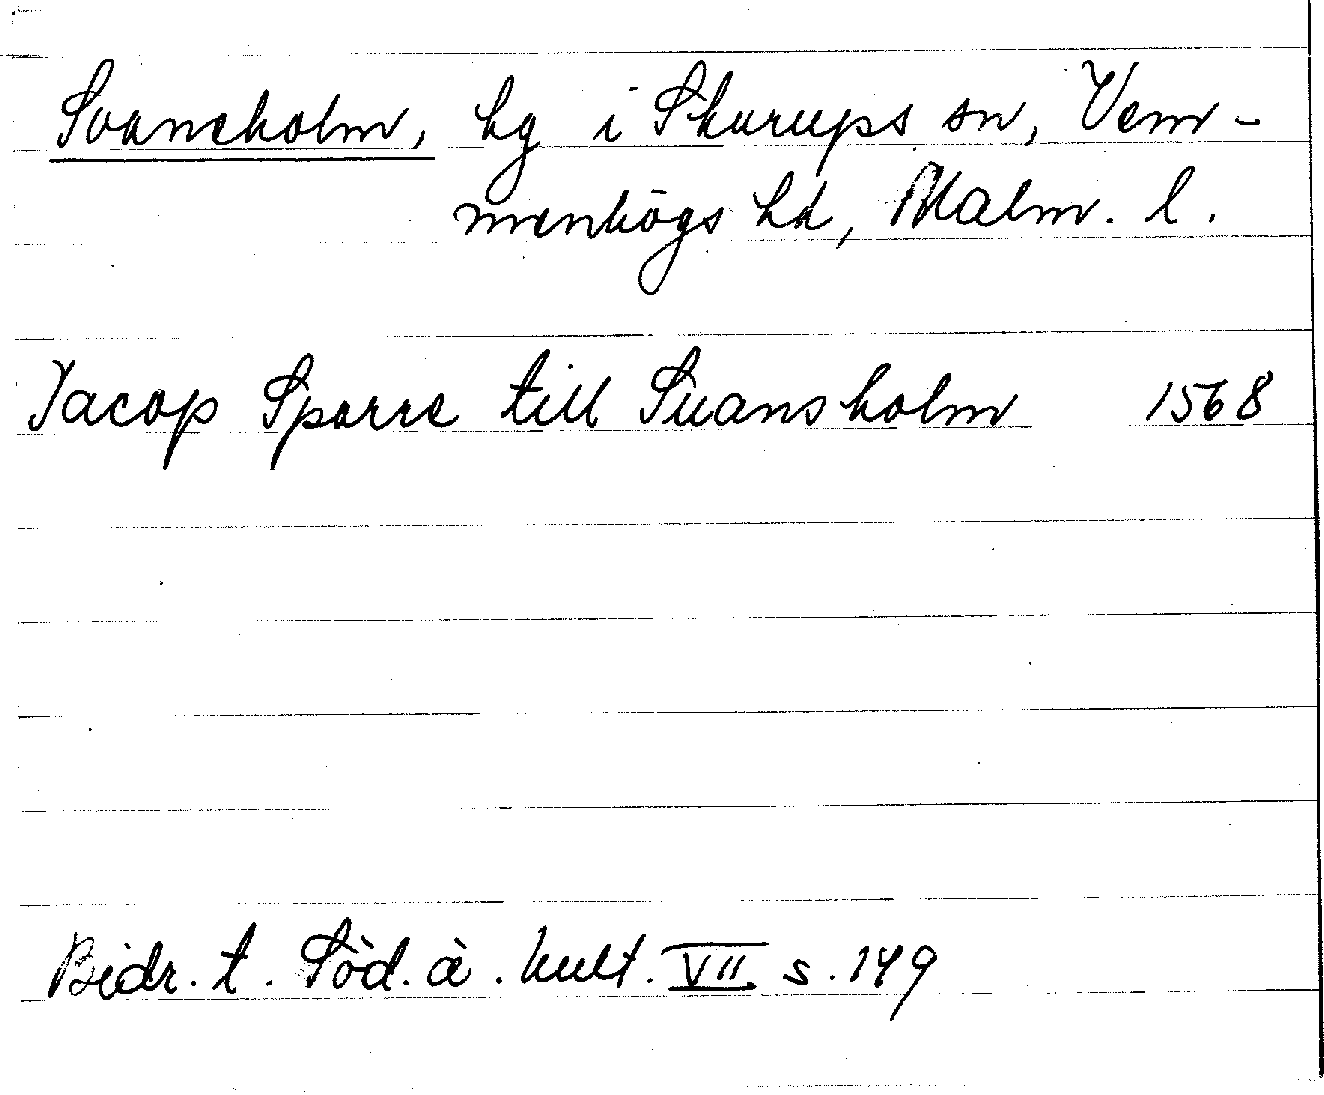 Svaneholm, hg i Skurups sn, Vem-
menhögs hd, Malm. l.
Jacop Sparre till Suansholm 1568
Bidr. t. Söd. ä. kult. VII s. 149